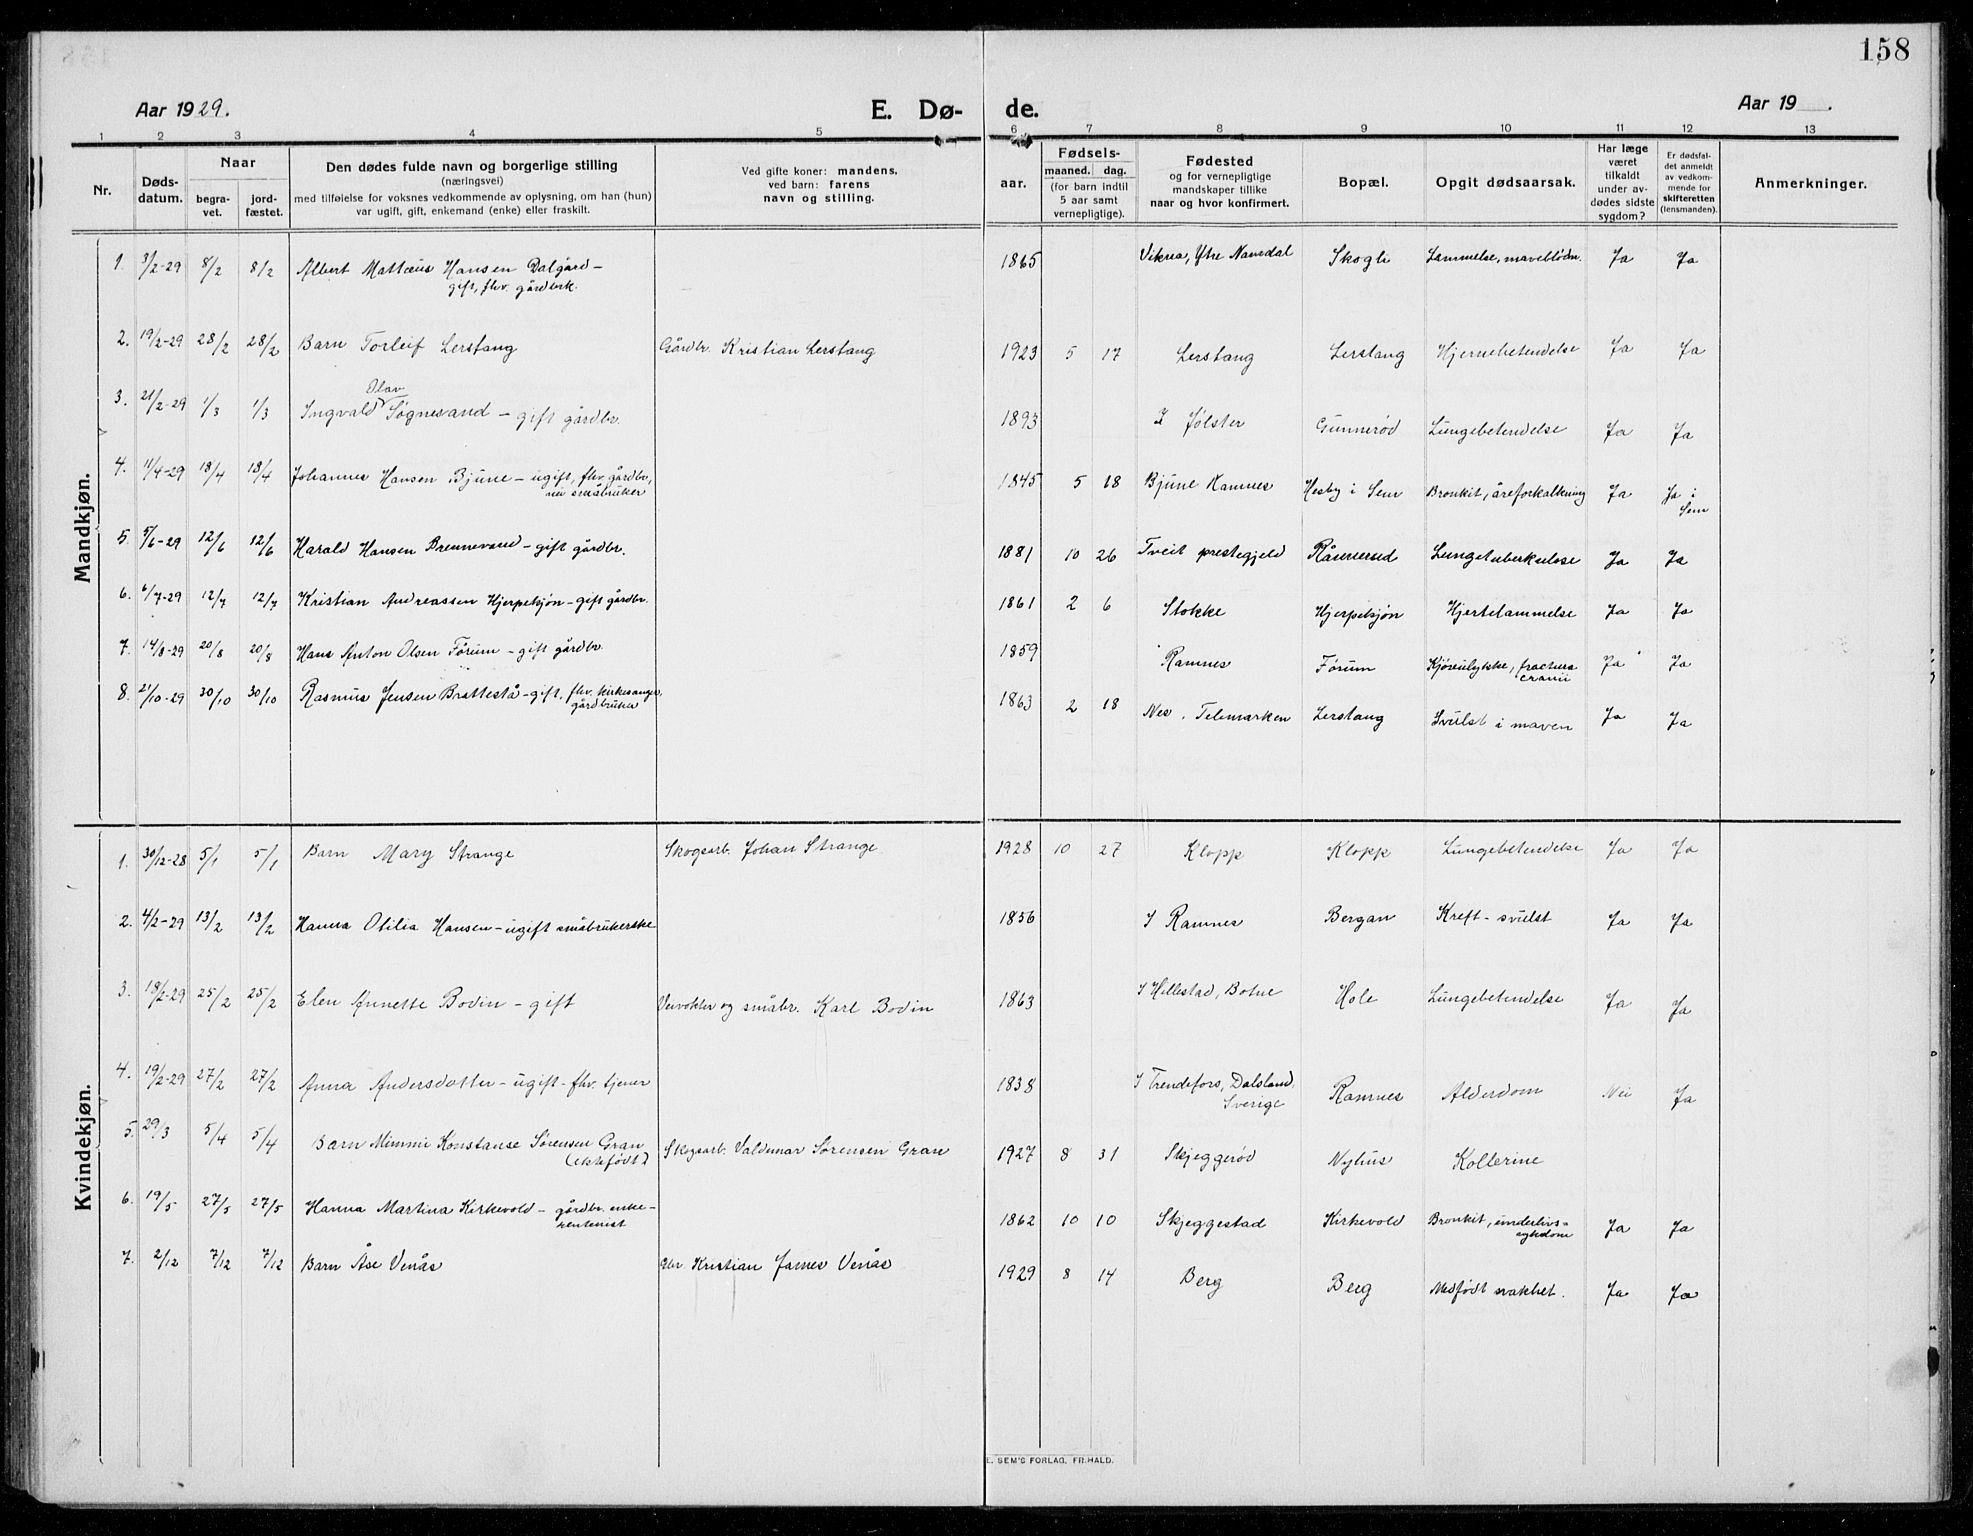 158
Aar 1929.
E. Dø- de.
Aar 19 .
1 2 3 4 5 6 7 8 9 10 11 12 13
Nr.
Døds-
datum.
Naar
begra-
vet.
jord-
fæstet.
Den dødes fulde navn og borgerlige stilling
(næringsvei)
med tilføielse for voksnes vedkommende av oplysning, om han (hun)
var ugift, gift, enkemand (enke) eller fraskilt.
Ved gifte koner: mandens.
ved barn: farens
navn og stilling.
aar.
Fødsels-
maaned. dag.
(for barn indtil
5 aar samt
vernepligtige).
Fødested
og for vernepligtige
mandskaper tillike
naar og hvor konfirmert.
Bopæl.
Opgit dødsaarsak.
Har læge
været
tilkaldt
under av-
dødes sidste
sygdom?
Er dødsfal-
det anmeldt
av vedkom-
mende for
skifteretten
(lensmanden).
Anmerkninger.
Mandkjøn.
1. 3/2-29 8/2 8/2 Albert Mattæus Hansen Dalgård - 1865 Vikna, Ytre Namdal Skogli Lammelse, maveblødn. Ja Ja
gift, fhv. gårdbrk.
2. 19/2-29 28/2 28/2 Barn Torleif Lerstang Gårdbr. Kristian Lerstang 1923 5 17 Lerstang Lerstang Hjernebetendelse Ja Ja
Olav
3. 21/2-29 1/3 1/3 Ingvald Søgnesand - gift gårdbr. 1893 I Jølster Gunnerød Lungebetendelse Ja Ja
4. 11/4-29 18/4 18/4 Johannes Hansen Bjune - ugift, fhv. gårdbr, 1845 5 18 Bjune Ramnes Hesby i Sem Bronkit, åreforkalkning Ja Ja i
nu småbruker Sem
5. 5/6-29 12/6 12/6 Harald Hansen Brennevand - gift gårdbr. 1881 10 26 Tveit prestegjeld Rånerud Lungetuberkulose Ja Ja
6. 6/7-29 12/7 12/7 Kristian Andreassen Hjerpekjøn - gift gårdbr. 1861 2 6 Stokke Hjerpekjøn Hjertelammelse Ja Ja
7. 14/8-29 20/8 20/8 Hans Anton Olsen Førum - gift gårdbr. 1859 Ramnes Førum Kjøreulykke, fractura Ja Ja
cranii
8. 21/10-29 30/10 30/10 Rasmus Jensen Brattestå - gift, fhv. kirkesanger, 1863 2 18 Nes. Telemarken Lerstang Svulst i maven Ja Ja
gårdbruker
Kvindekjøn.
1. 30/12-28 5/1 5/1 Barn Mary Strange Skogsarb. Johan Strange 1928 10 27 Klopp Klopp Lungebetendelse Ja Ja
2. 4/2-29 13/2 13/2 Hanna Otilia Hansen - ugift småbrukerske 1856 I Ramnes Bergan Kreft-svulst Ja Ja
3. 18/2-29 25/2 25/2 Elen Annette Bodin - gift Veivokter og småbr. Karl Bodin 1863 I Hillestad, Botne Hole Lungebetendelse Ja Ja
4. 19/2-29 27/2 27/2 Anna Andersdotter - ugift - fhv. tjener 1838 I Trendefors, Dalsland, Ramnes Alderdom Nei Ja
Sverige
5. 29/3 5/4 5/4 Barn Mimmi Konstanse Sørensen Gran Skogsarb. Valdemar Sørensen Gran 1927 8 31 Skjeggerød Nyhus Kollerine
(ektefødt)
6. 19/5 27/5 27/5 Hanna Martina Kirkevold - gårdbr. enke - 1862 10 10 Skjeggestad Kirkevold Bronkit, underlivs- Ja Ja
rentenist sykdom
7. 2/12 7/12 7/12 Barn Åse Venås Gbr Kristian James Venås 1929 8 14 Berg Berg Medfødt svakhet. Ja Ja
E. SEM'S FORLAG, FR.HALD.